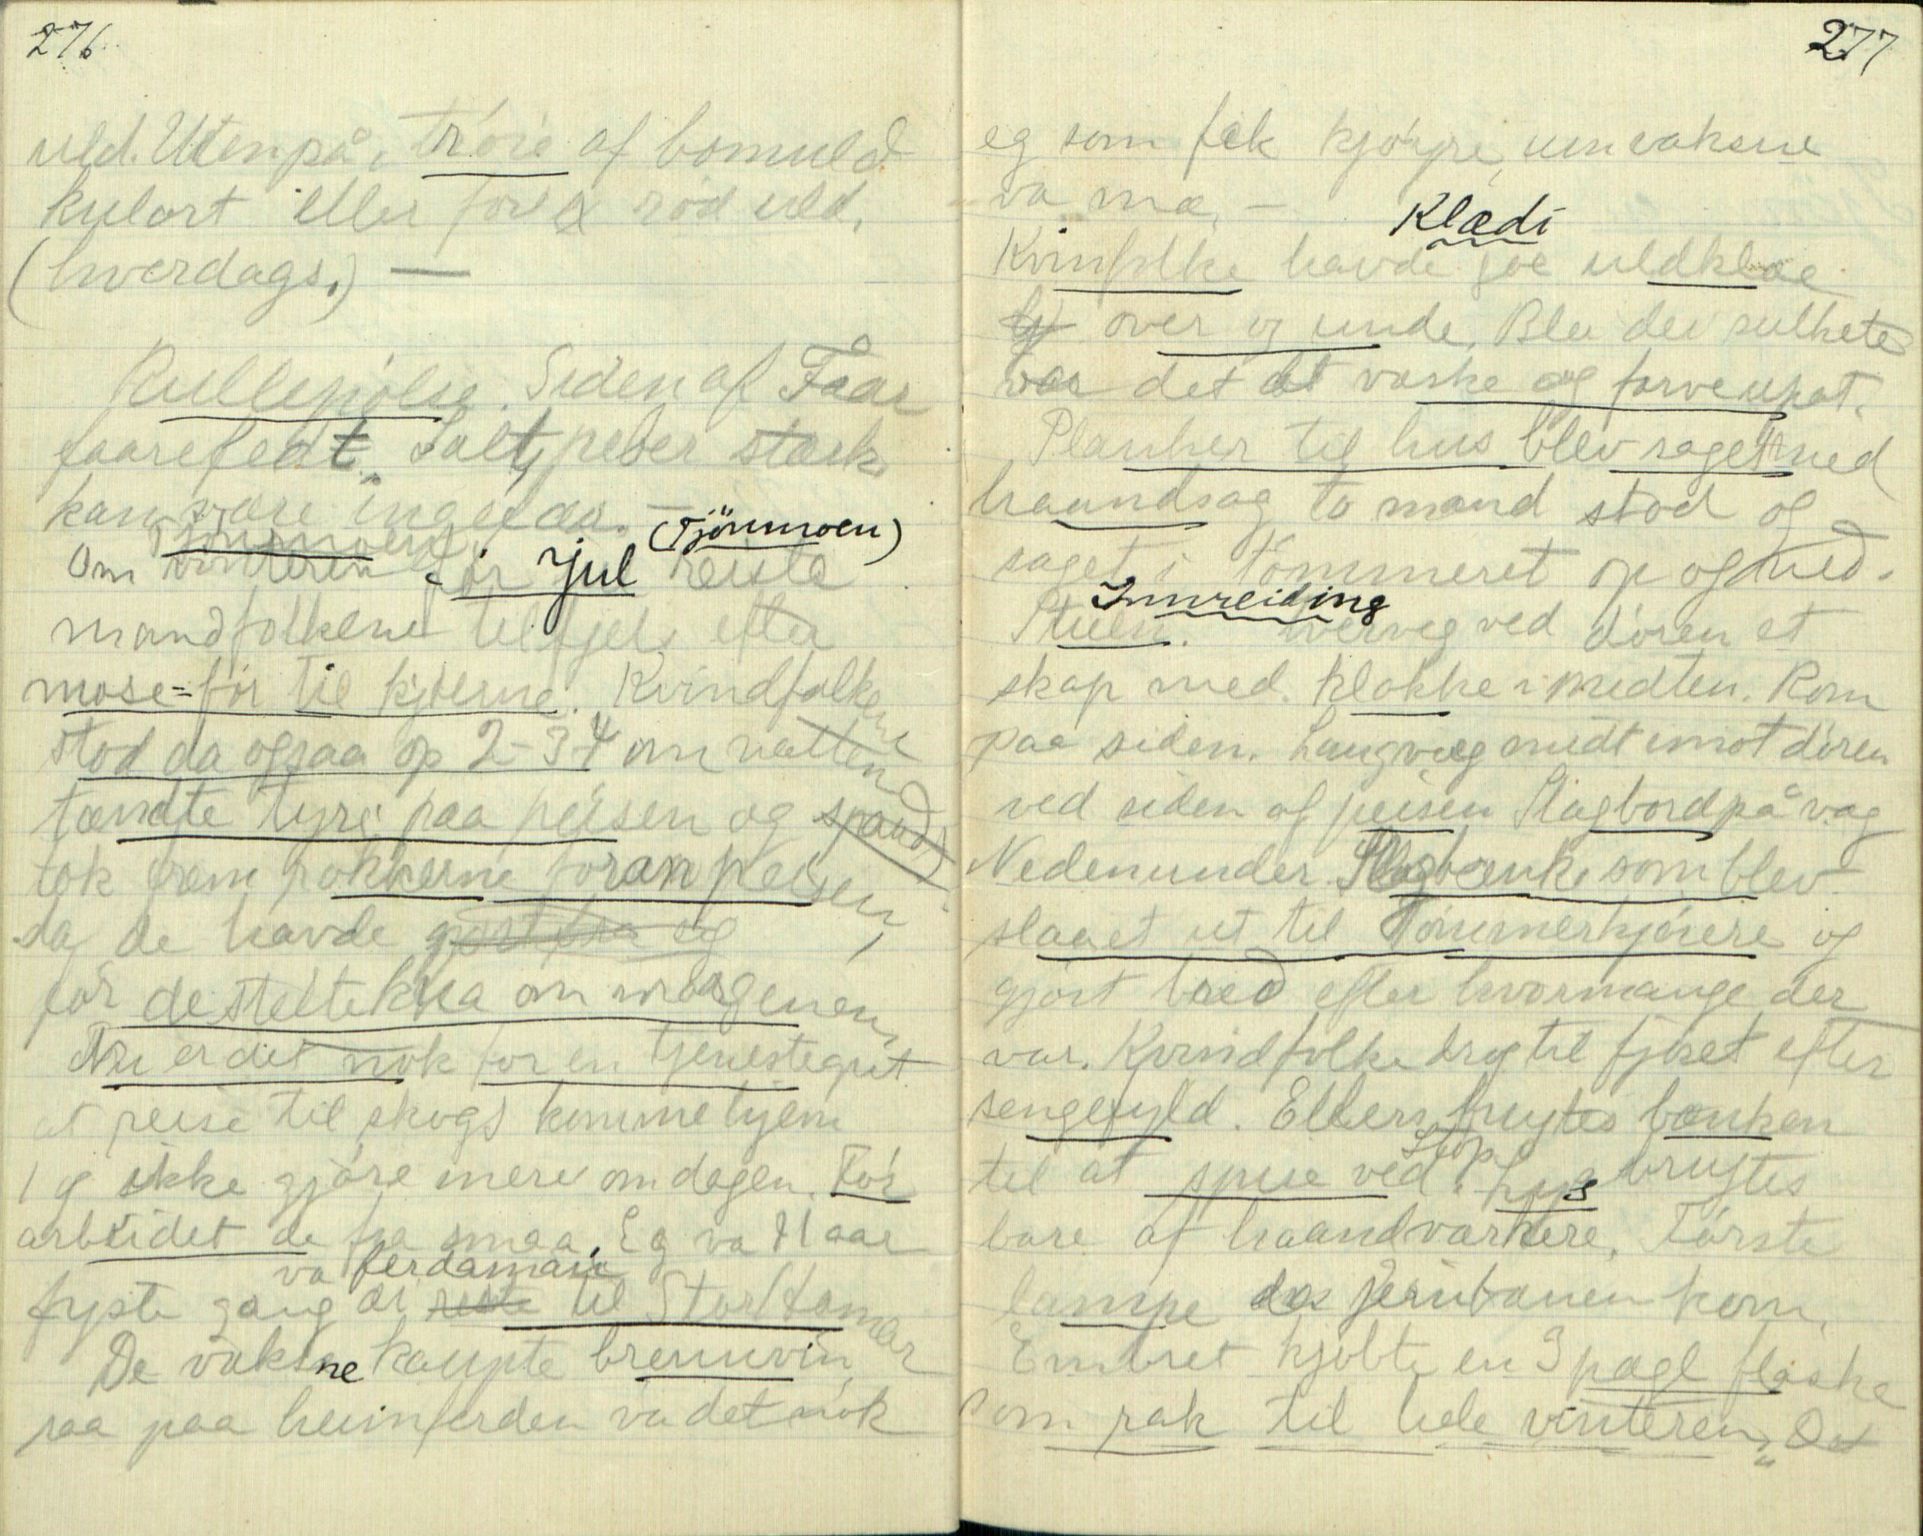 276
uld. Utenpå, trøie af bomuld
kulørt eller rød uld,
(hverdags.) —
Rullepølse. Siden af Faar
faarefedt. Salt, peber stærk
kan være ingefær. —
(Tjönnmoen)
Om vinteren før jul reiste
mandfolkene til fjels efter
mose-för til kjørne. Kvindfolkene
stod da ogsaa op 2-3-4 om natten
tændte tyri paa peisen og spandt
tok frem rokkerne foran peisen,
da de havde og
før de steltekrea om morgenen,
Nu er det nok for en tjenestegut
at reise til skogs komme hjem
og ikke gjøre mere om dagen. Før
arbeidet de fra smaa. Eg va 11 aar
va ferdamain
fyste gang di reste til Storhamar
De vaksne kaupte brennvin,
saa paa heimferden va det nok
277
eg som fek kjøyre, um vaksne
va mæ. —
Klædi
Kvinfolke havde uldklæe
over og unde. Blu dei sulkete
var det at vaske og farve upat.
Planker til hus blev saget med
haandsag to mand stod og
saget i tømmeret op og ned.
Innreiding
Stuen. tverveg ved døren et
skap med klokke i midten. Rom
paa siden. Langvæg midt imot døren
ved siden af peisen Slagbord på væg
Nedenunder Slagbænke som blev
slaaet ut til Tømmerkjørere og
gjort bred efter hvormange der
var. Kvindfolke drog til fjøset efter
sengefyld. Ellers brugtes bænken
til at spise ved. Lys brugtes
bare af haandværkere. Første
lampe da jernbanen kom.
Embret kjøbte en 3 pægl flaske
som rak til hele vinteren. Det